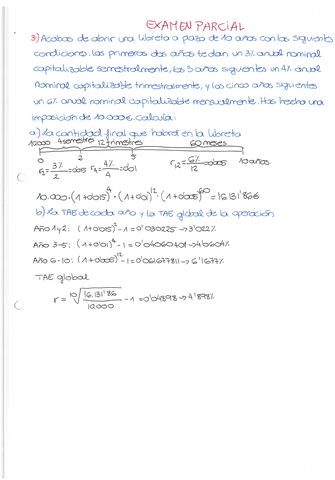 EXAMEN PARCIAL
3) Acabas de abrir una libreta a plazo de 10 años con las siguientes
condiciones: los primeros dos años te dan un 3% anual nominal
capitalizable semestralmente, los 3 años siguientes un 4% anual
nominal capitalizable trimestralmente, y los cinco años siguientes
un 6% anual nominal capitalizable mensualmente. Has hecho una
imposición de 10.000€. Calcula:
a) La cantidad final que habrá en la libreta
10.000 4 semestres 12 trimestres 60 meses
0 2 5 10 años
r2=3%/2=0'015 r4=4%/4=0'01 r12=6%/12=0'005
10.000·(1+0'015)^4·(1+0'01)^12·(1+0'005)^60=16.131'86€
b) La TAE de cada año y la TAE global de la operación
Año 1 y 2: (1+0'015)^2-1=0'030225→3'022%
Año 3-5: (1+0'01)^4-1=0'04060401→4'0604%
Año 6-10: (1+0'005)^12-1=0'061677811→6'1677%
TAE global
r=10√16.131'86/10.000-1=0'04898→4'898%